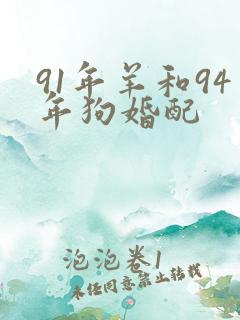 91年羊和94
年狗婚配
泡泡卷1
未经同意禁止转载